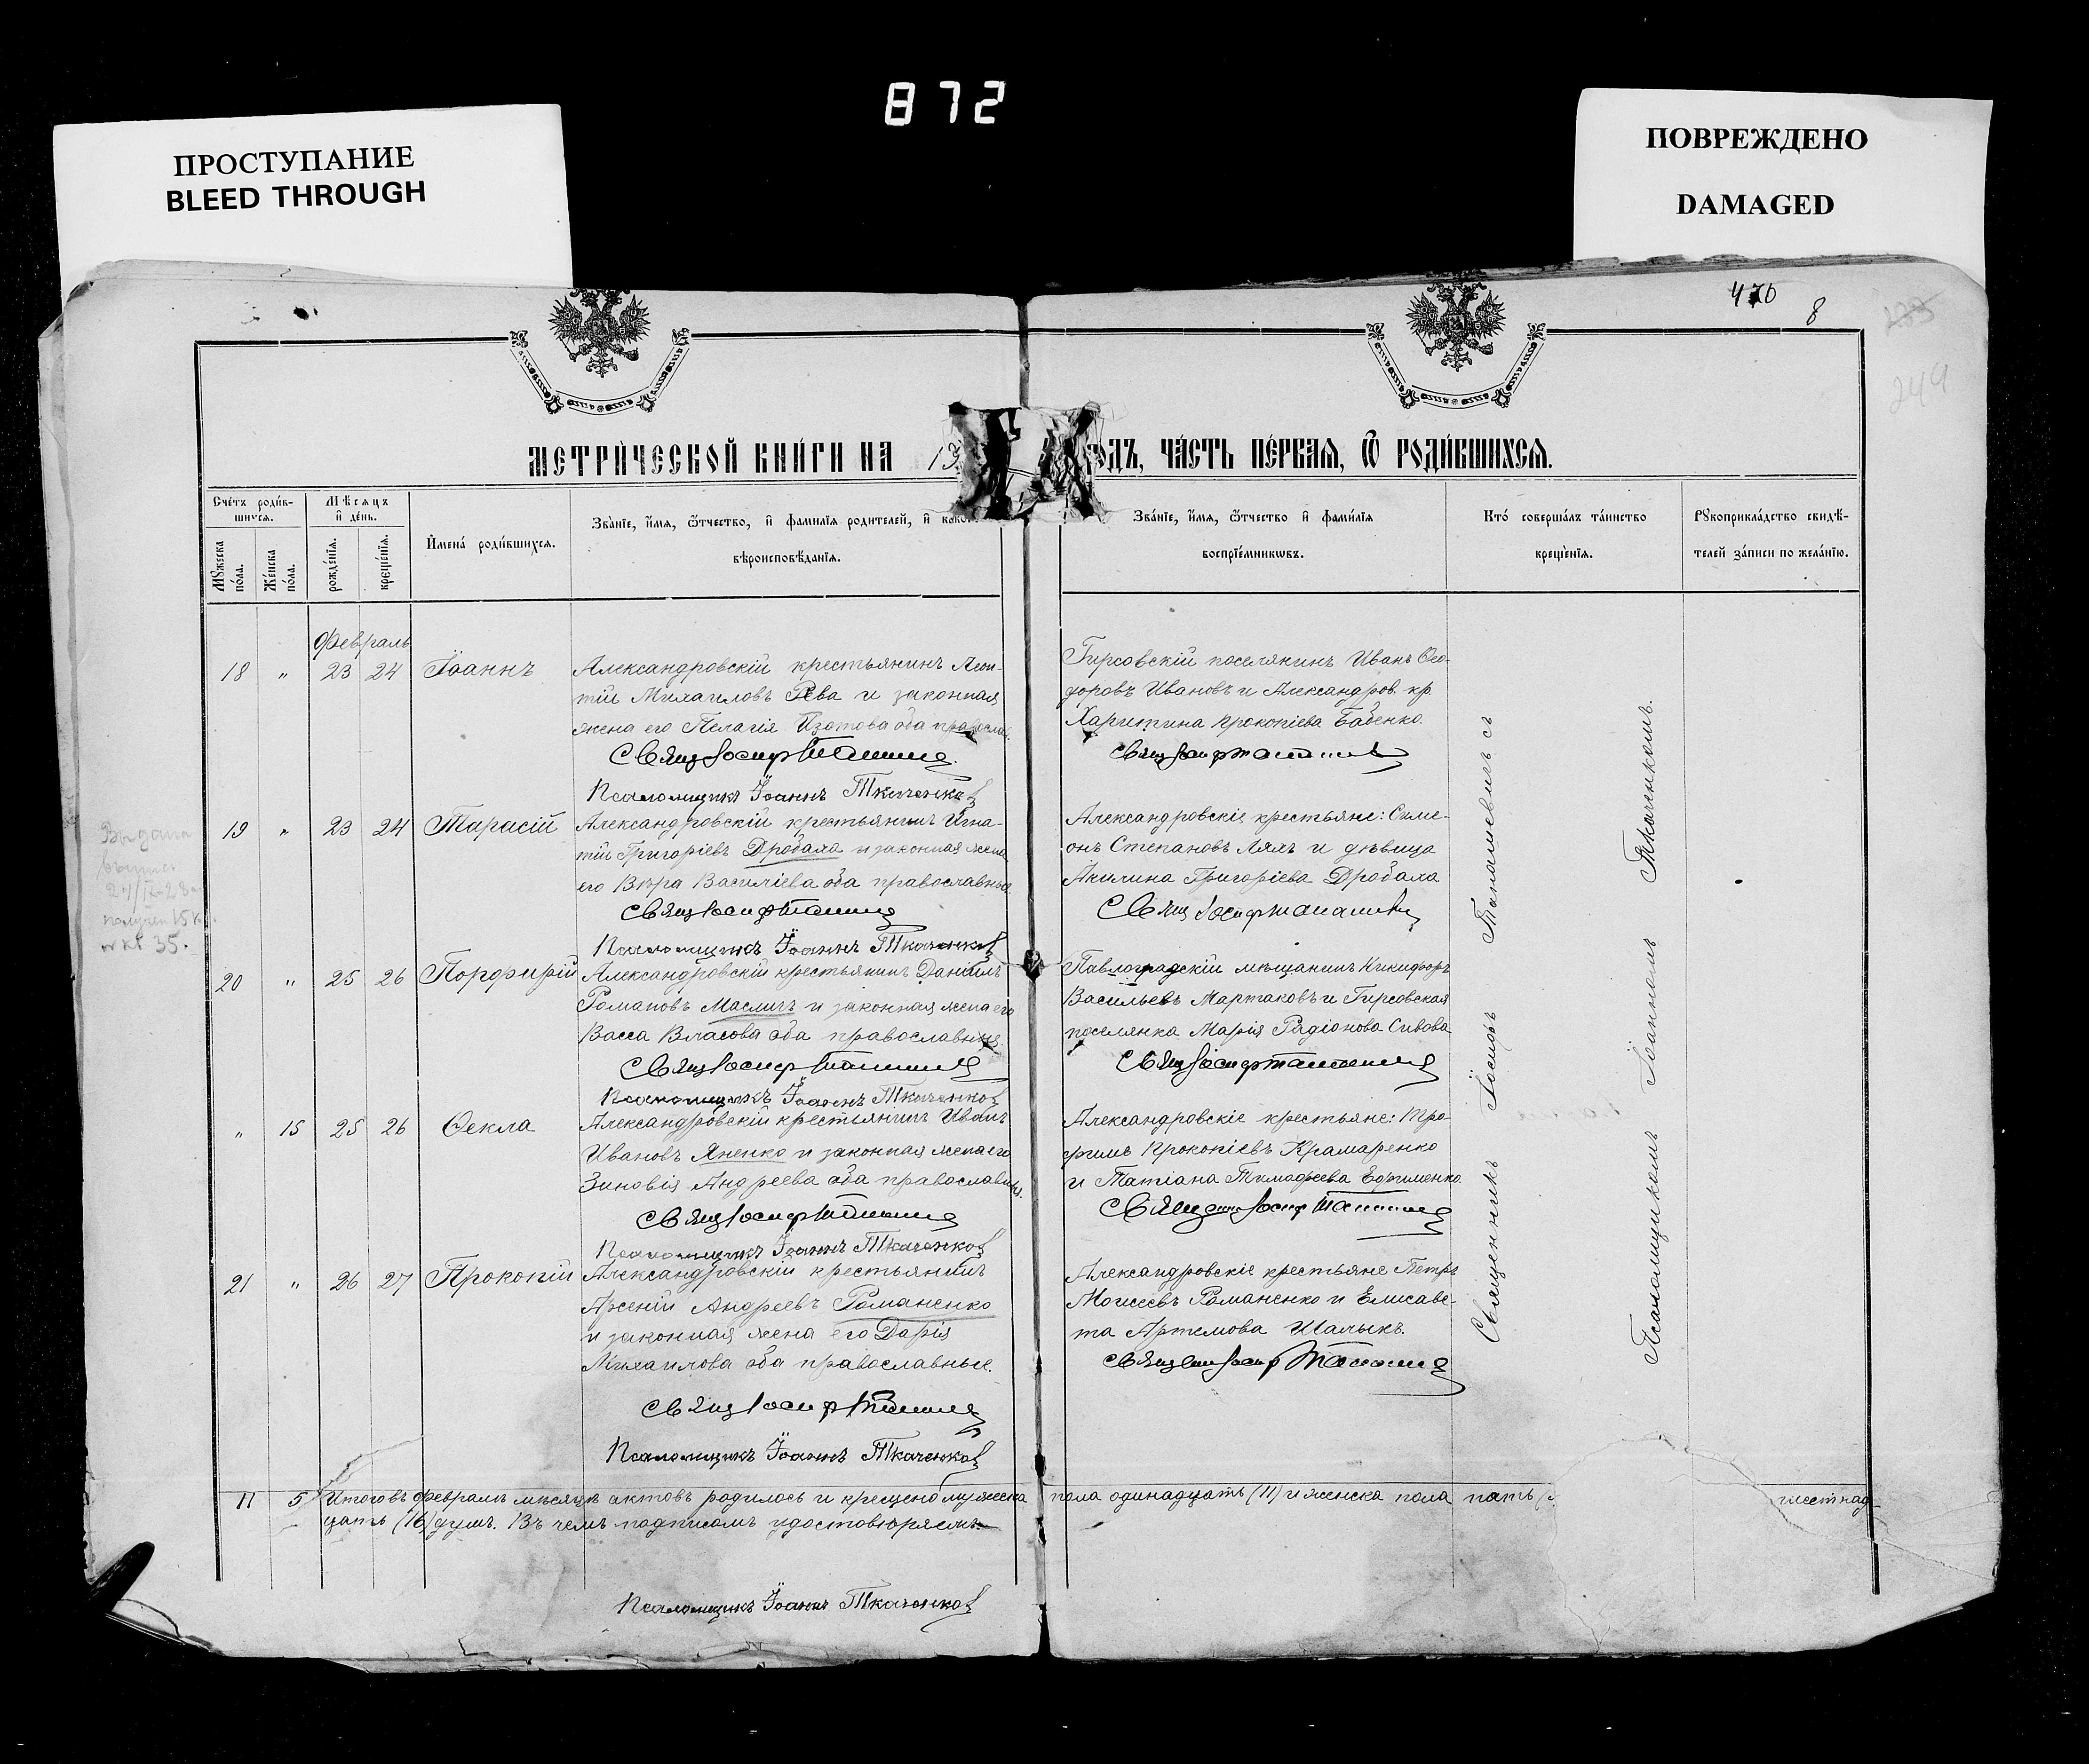 872
ПРОСТУПАНИЕ
BLEED THROUGH
ПОВРЕЖДЕНО
DAMAGED
470
8
244
МЕТРИ́ЧЕСКОЙ КНИ́ГИ НА 19
ГОДЪ, ЧА́СТЬ ПЕ́РВАЯ, Ѿ РОДИ́ВШИХСЯ.
Сче́тъ роди́в-
шихся.
Мѣсяцъ
и де́нь.
Му́жеска
по́ла.
Же́нска
по́ла.
рожде́нія.
креще́нія.
Имена́ роди́вшихся.
Зва́нїе, и́мя, ѻ́тчество, и фами́лїя родителей, и како́го
вѣроисповѣ́данїя.
Зва́нїе, и́мя, ѻ́тчество и фами́лїя
воспрїе́мниковъ.
Кто́ соверша́лъ та́инство
креще́нїя.
Рукоприкла́дство свидѣ́-
телей за́писи по жела́нїю.
Февраль
18 " 23 24 Іоаннъ
Александровскій крестьянинъ Леон-
тій Михаиловъ Рева и законная
жена его Пелагія Изотова оба православ.
Свящ Іосиф
Псаломщикъ Іоаннъ Ткаченков
Гирсовскій поселянинъ Иванъ Ѳео-
доровъ Ивановъ и Александров. кр.
Харитина Прокопіева Бабенко.
Свящ Іосиф
19 " 23 24 Тарасій
Александровскій крестьянинъ Игна-
тій Григоріевъ Дробаха и законная жена
его Вѣра Василіева оба православные.
Свящ Іосиф
Псаломщикъ Іоаннъ Ткаченков
Александровскіе крестьяне: Симе-
онъ Степановъ Лялъ и дѣвица
Акилина Григоріева Дробаха
Свящ Іосиф
Выдана
24/IX-28
получен 15 к.
кв 35.
20 " 25 26 Порфирій
Александровскій крестьянинъ Даніилъ
Романовъ Маслич и законная жена его
Васса Власова оба православные.
Свящ Іосиф
Псаломщикъ Іоаннъ Ткаченков
Павлоградскій мѣщанинъ Никифоръ
Васильевъ Мартаковъ и Гирсовская
поселянка Марія Радіонова Сивова
Свящ Іосиф
" 15 25 26 Ѳекла
Александровскій крестьянинъ Иванъ
Ивановъ Яненко и законная жена его
Зиновія Андреева оба православные.
Свящ Іосиф
Псаломщикъ Іоаннъ Ткаченков
Александровскіе крестьяне: Тро-
фимъ Прокопіевъ Крамаренко
и Татіана Тимофеева Ефименко.
Свящ Іосиф
21 " 26 27 Прокопій
Александровскій крестьянинъ
Арсеній Андреевъ Романенко
и законная жена его Дарія
Михаилова оба православные.
Свящ Іосиф
Псаломщикъ Іоаннъ Ткаченков
Александровскіе крестьяне Петръ
Моисеевъ Романенко и Елисаве-
та Артемова Шалыкъ.
Свящ Іосиф
Священникъ Іосифъ Танашевичъ съ
Псаломщикомъ Іоанномъ Ткаченкомъ.
11 5 Итого въ февралѣ мѣсяцѣ актовъ родилось и крещено мужеска пола одинадцать (11) и женска пола пять шестнад-
цать (16) душъ. Въ чемъ подписомъ удостовѣряемъ
Псаломщикъ Іоаннъ Ткаченков